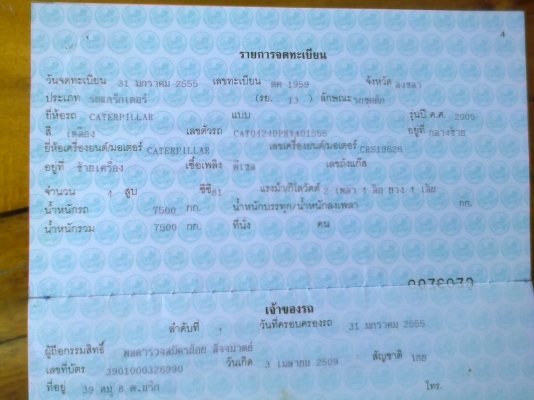 4
รายการจดทะเบียน
วันจดทะเบียน 31 มกราคม 2555 เลขทะเบียน ตค 1959 จังหวัด สงขลา
ประเภท รถแทรกเตอร์ (รย. 13 ) ลักษณะ รถขุดตัก
ยี่ห้อรถ CATERPILLAR แบบ รุ่นปี ค.ศ. 2006
สี เหลือง เลขตัวรถ อยู่ที่ กลางซ้าย
ยี่ห้อเครื่องยนต์/มอเตอร์ CATERPILLAR เลขเครื่องยนต์/มอเตอร์ CRS19626
อยู่ที่ ซ้ายเครื่อง เชื้อเพลิง ดีเซล เลขถังแก๊ส
จำนวน 4 สูบ ซีซี แรงม้า/กิโลวัตต์ 2 เพลา 4 ล้อ ยาง 4 เส้น
น้ำหนักรถ 7500 กก. น้ำหนักบรรทุก/น้ำหนักลงเพลา กก.
น้ำหนักรวม 7500 กก. ที่นั่ง คน
เจ้าของรถ
ลำดับที่ วันที่ครอบครองรถ 31 มกราคม 2555
ผู้ถือกรรมสิทธิ์
เลขที่บัตร 3901000326990 วันเกิด 3 เมษายน 2509 สัญชาติ ไทย
ที่อยู่ 39 หมู่ 8 โทร.